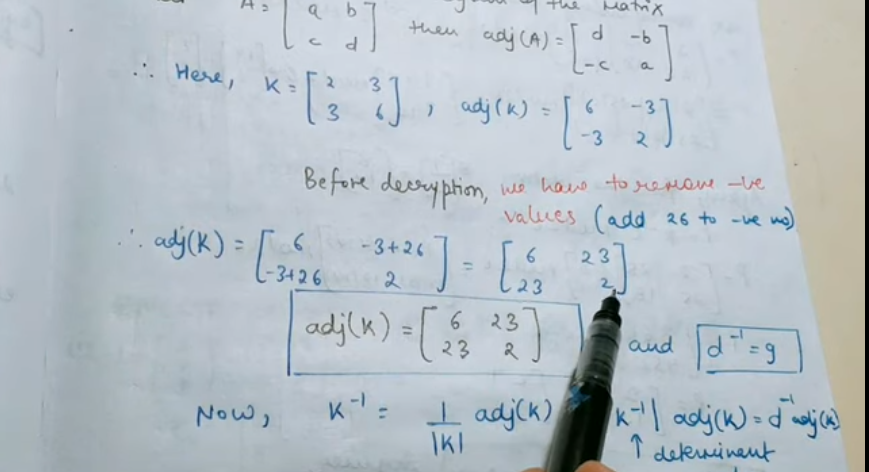 A = [ a b
c d ] then adj(A) = [ d -b
-c a ]
of the matrix
∴ Here, K = [ 2 3
3 6 ] , adj(K) = [ 6 -3
-3 2 ]
Before decryption, we have to remove -ve
values (add 26 to -ve no)
∴ adj(K) = [ 6 -3+26
-3+26 2 ] = [ 6 23
23 2 ]
adj(K) = [ 6 23
23 2 ] and d⁻¹ = 9
Now, K⁻¹ = 1/|K| adj(K) K⁻¹| adj(K) = d⁻¹ adj(K)
↑ determinent